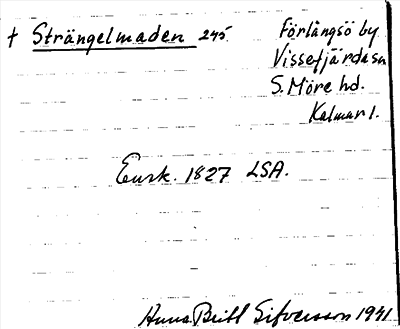 † Strängelmaden 245 Förlångsö by
Vissefjärda sn
S. Möre hd.
Kalmar l.
Ensk. 1827 LSA.
Anna Britt Sifversson 1941